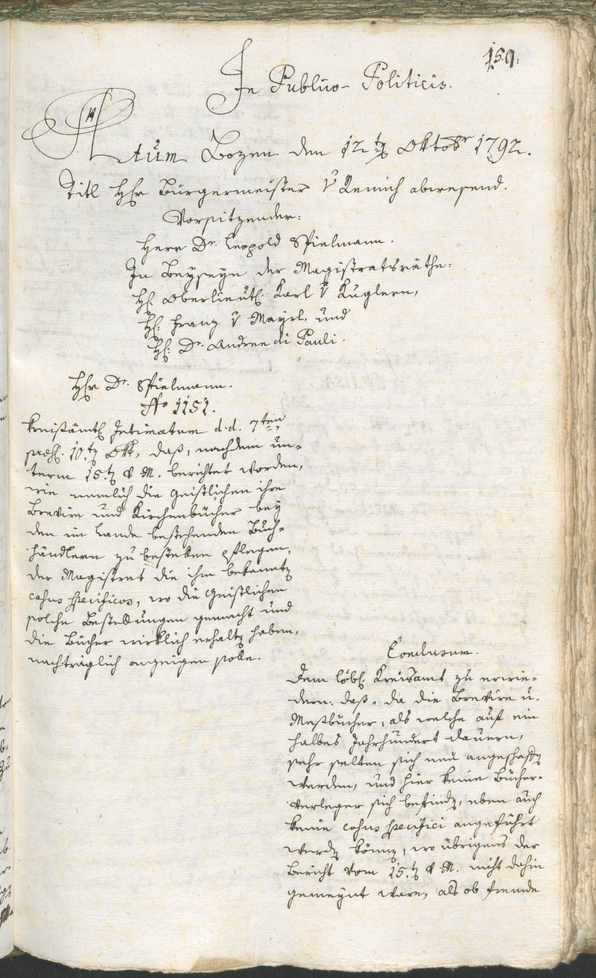 159.
In Publico-Politicis.
Actum Bozen den 12ten Oktobr 1792.
Titl Hhr Bürgermeister v Remich abwesend.
Vorsitzender:
Herr Dr. Leopold Spielmann.
In Beyseyn der Magistratsräthe:
Hh. Oberlieut. Karl v Kuglern,
Hh. Franz v Mayrl, und
Hh. Dr. Andree di Pauli.
Hhr Dr. Spielmann.
No 1151.
kreisämtl Intimatum d.d. 7ten
præs. 10.ten Okt., daß, nachdem un-
term 15.ten v. M. berichtet worden,
wie nemlich die Geistlichen ihre
Breviere und Kirchenbücher bey
den im Lande bestehenden Buch-
händlern zu bestellen pflegen,
der Magistrat die ihm bekannte
casus specificos, wo die Geistlichen
solche Bestellungen gemacht und
die Bücher wirklich erhalten haben,
nachträglich anzeigen solle.
Conclusum.
Dem löbl. Kreisamt zu erwie-
dern: daß, da die Breviere u.
Meßbücher, als welche auf ein
halbes Jahrhundert dauern,
sehr selten sich neu angeschaft
werden, und hier keine Bücher-
verleger sich befinden, eben auch
keine casus specifici angeführt
werden können, wo übrigens der
Bericht vom 15.ten v. M. nicht dahin
gemeynt ware, als ob fremde